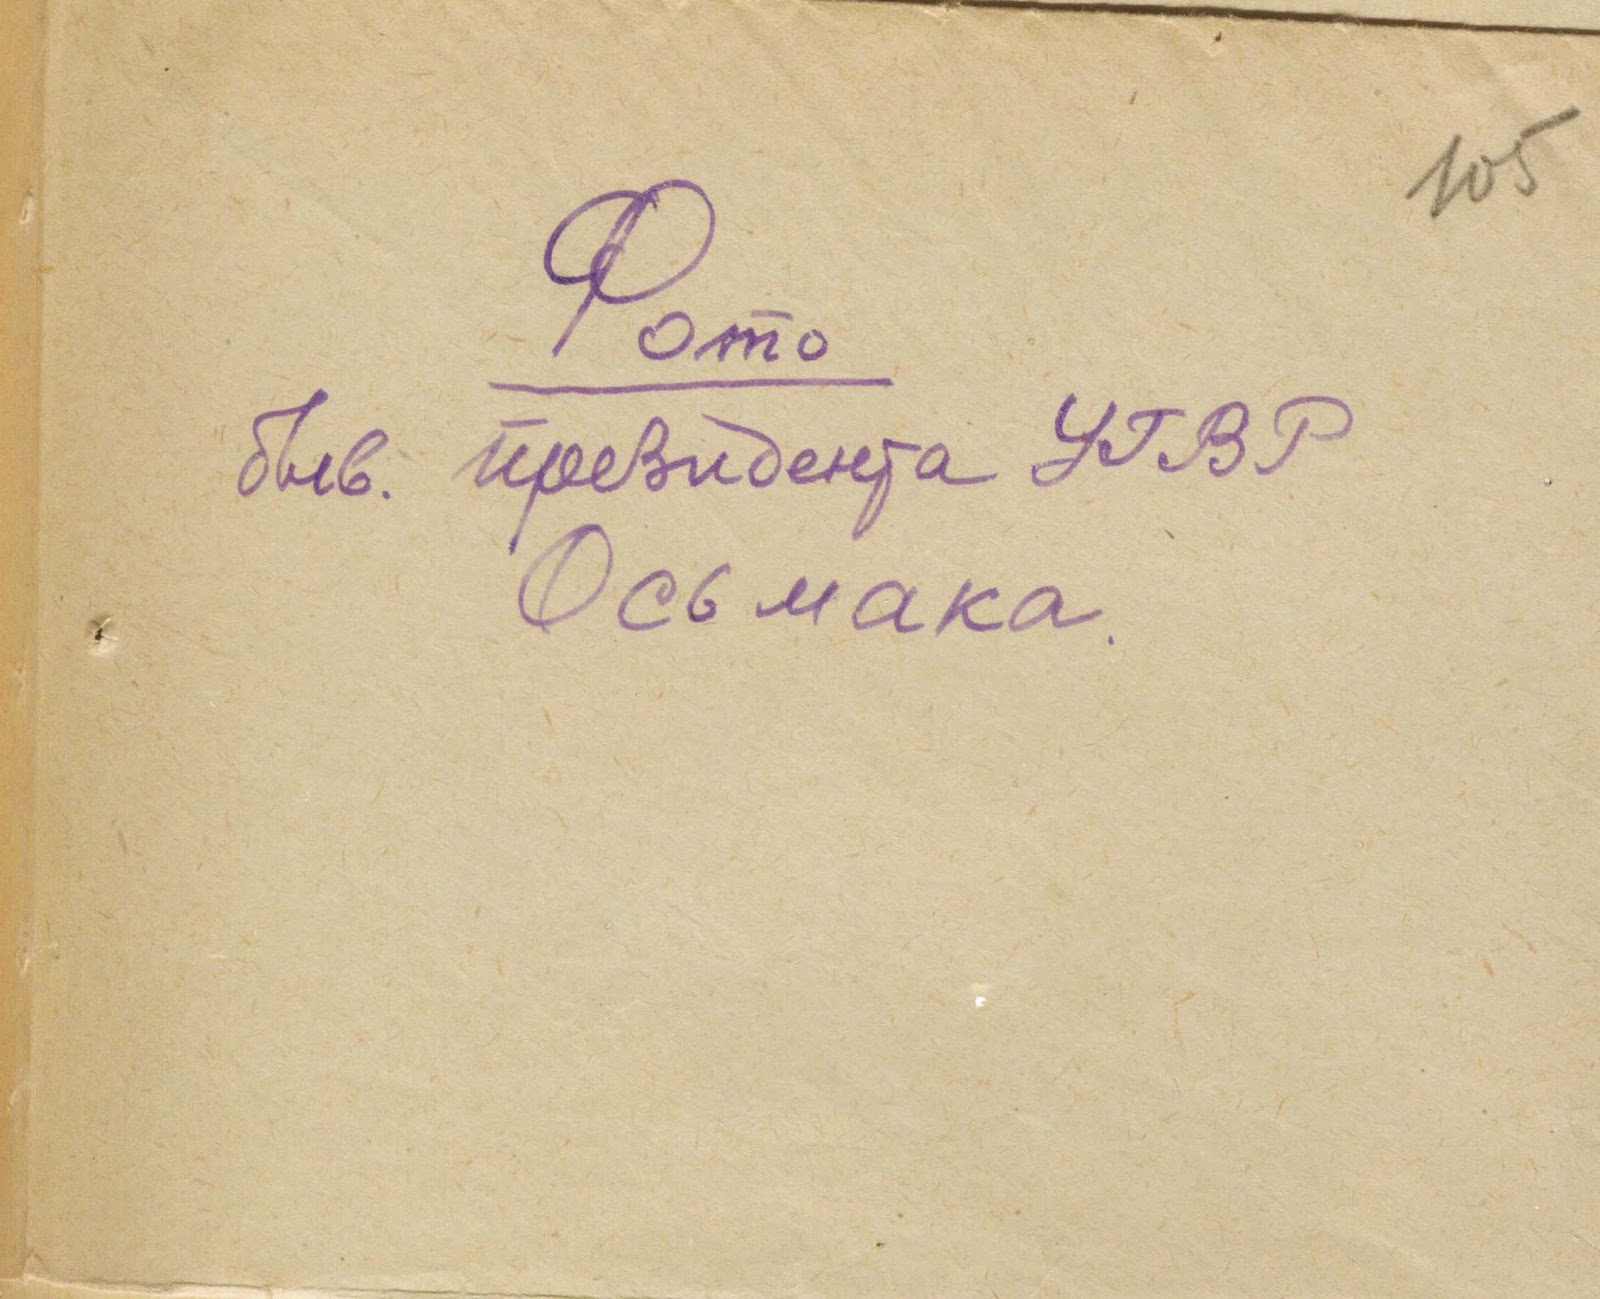 105
Фото
бывв. президента УГВР
Осьмака.